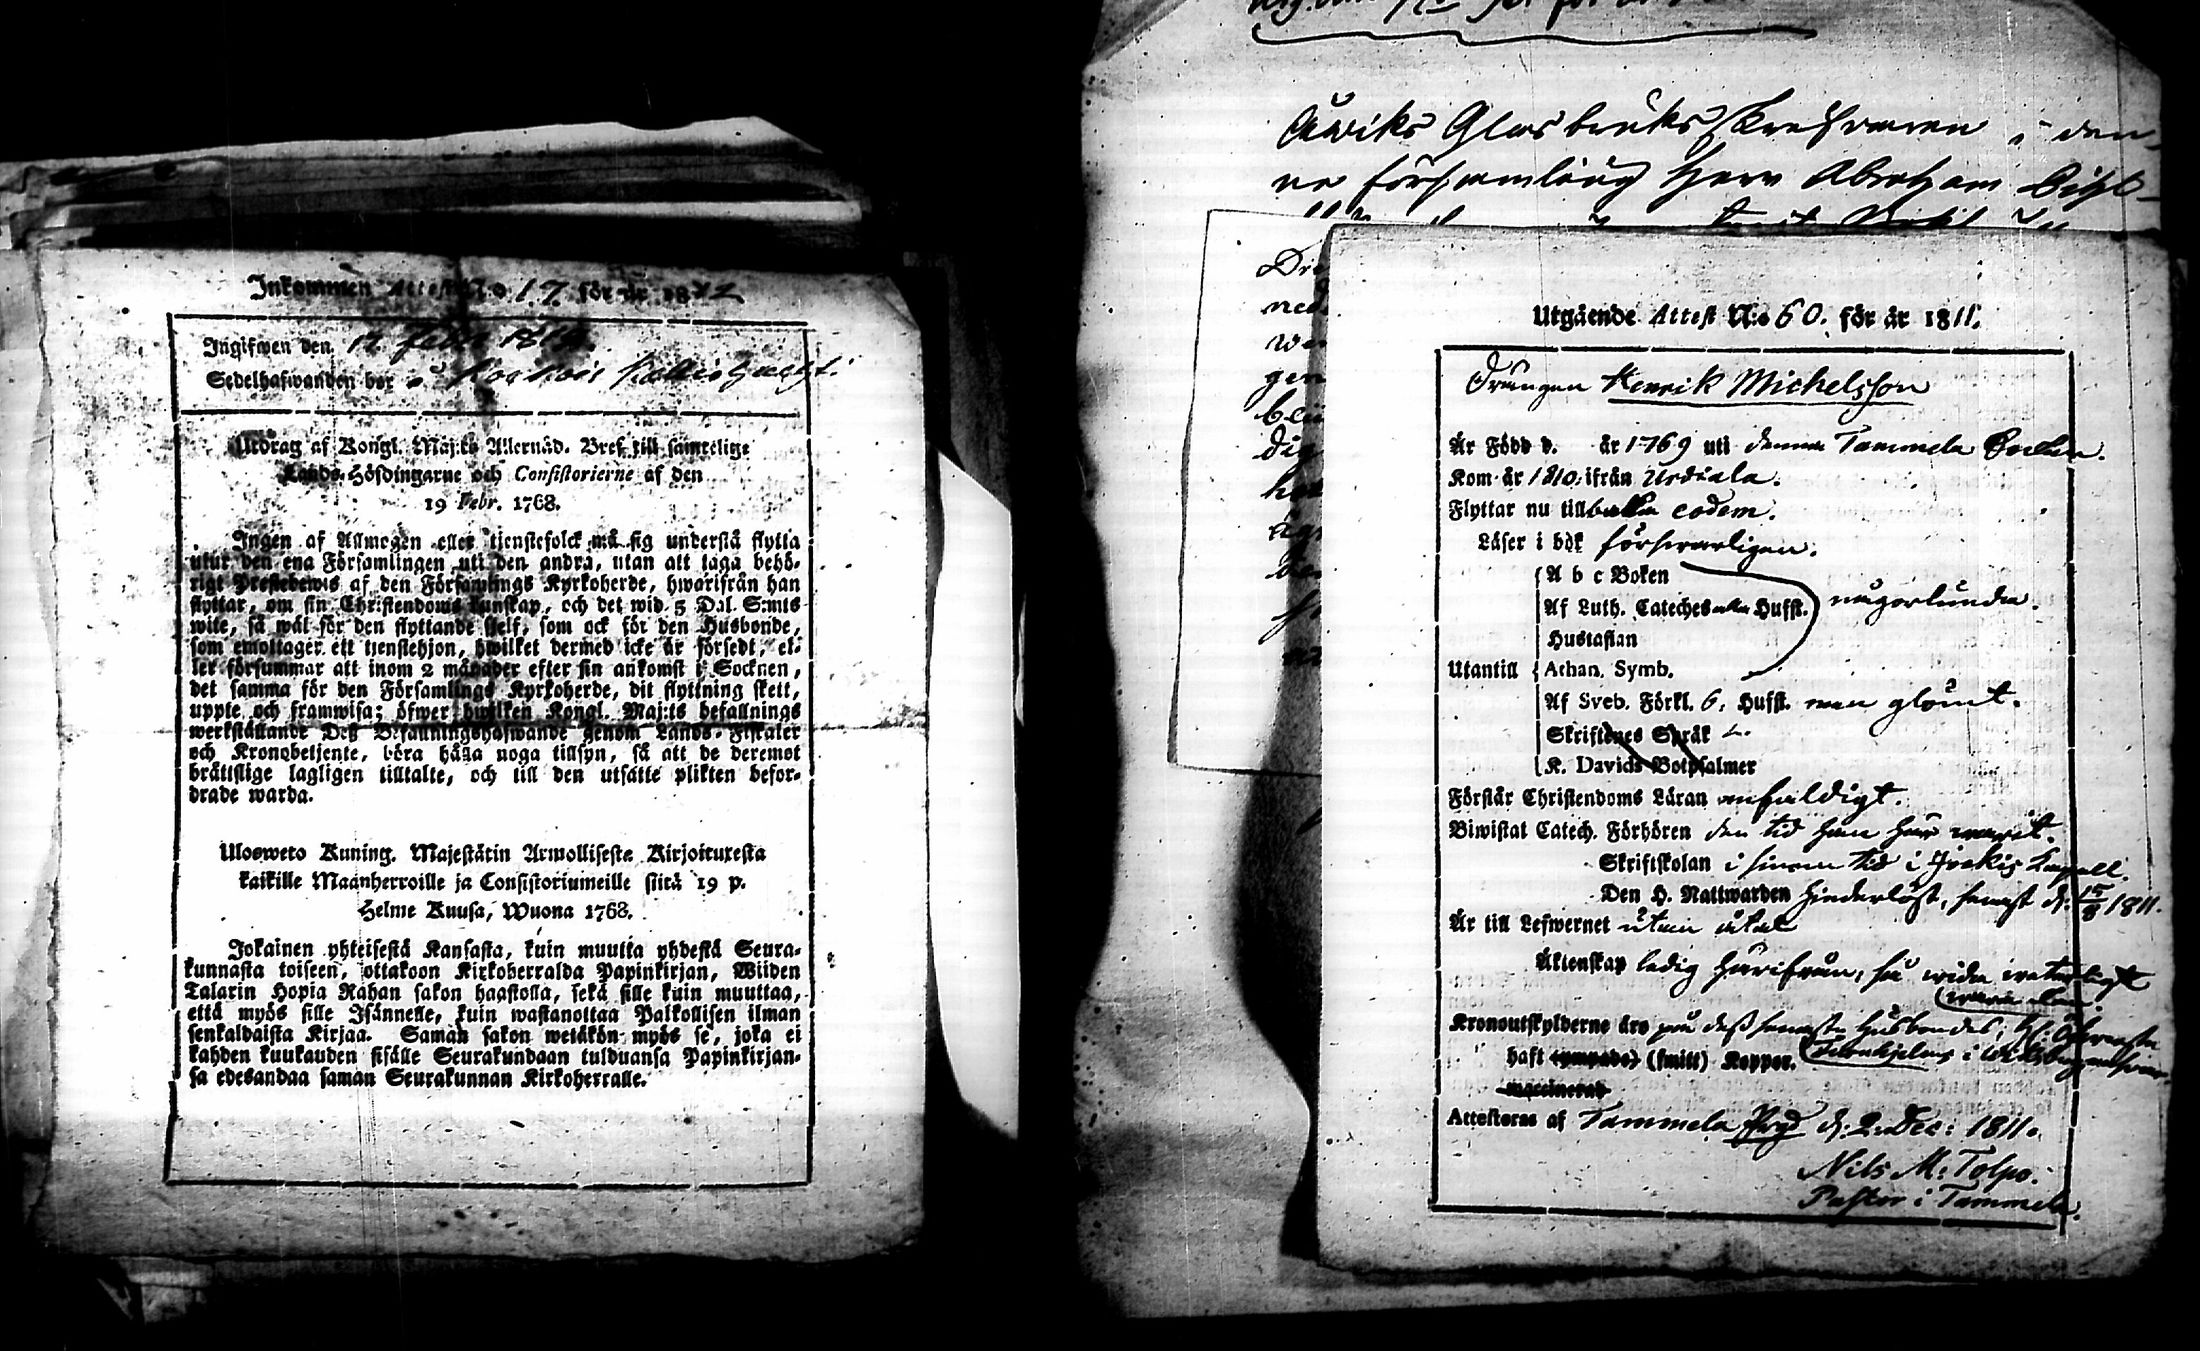 Inkommen Attest N:o 17 för år 1812
Ingifwen den 17 Febr 1812.
Sedelhafwanden bor i
Utdrag af Kongl. Maj:ts Allernåd. Bref till samtelige
Lands-Höfdingarne och Consistorierne af den
19 Febr. 1768.
Ingen af Allmogen eller tjenstefolck må sig understå flytta
utur den ena Församlingen uti den andra, utan att taga behö-
rigt Prestebewis af den Församlings Kyrkoherde, hwarifrån han
flyttar, om sin Christendoms kunskap, och det wid 5 Dal. S:mts
wite, så wäl för den flyttande sjelf, som ock för den Husbonde,
som emottager ett tjenstehjon, hwilket dermed icke är försedt, el-
ler försummar att inom 2 månader efter sin ankomst i Socknen,
det samma för den Församlings Kyrkoherde, dit flyttning skett,
uppte och framwisa; öfwer hwilken Kongl. Maj:ts befallnings
werkställande Deß Befallningshafwande genom Lands-Fiskaler
och Kronobetjente, böra hålla noga tillsyn, så att de deremot
bråttslige lagligen tilltalte, och till den utsatte plikten befor-
drade warda.
Ulosweto Kuning. Majestätin Armollisesta Kirjoituxesta
kaikille Maanherroille ja Consistoriumeille siitä 19 p.
Helme Kuusa, Wuona 1768.
Jokainen yhteisestä Kansasta, kuin muutta yhdestä Seura-
kunnasta toiseen, ottakoon Kirkoherralda Papinkirjan, Wiiden
Talarin Hopia Rahan sakon haastolla, sekä sille kuin muuttaa,
että myös sille Isännelle, kuin wastanottaa Palkollisen ilman
senkaldaista Kirjaa. Saman sakon wetäkön myös se, joka ei
kahden kuukauden sisälle Seurakundaan tulduansa Papinkirjan-
sa edesandaa saman Seurakunnan Kirkoherralle.
Åwiks Glasbruks i den
ne församling Herr Abraham
Utgående Attest N:o 60. för år 1811.
Drängen Henrik Michelsson
Är Född d. år 1769 uti denna Tammela Socken.
Kom år 1810 ifrån Urdiala.
Flyttar nu tillbaka eodem.
Läser i bok försvarligen.
A b c Boken
Af Luth. Cateches alla Hufst. någorlunda.
Hustaflan
Utantill Athan. Symb.
Af Sveb. Förkl. 6. Hufst. men glömt.
Skriftenes Språk
K. Davids Botpsalmer
Förstår Christendoms Läran enfaldigt.
Biwistat Catech. Förhören den tid han här warit.
Skriftskolan i sinom tid i Jockis Capell.
Den H. Nattwarden hinderlöst, senast d. 15/8 1811.
Är till Lefwernet utan åtal
Äktenskap ledig härifrån, så wida weterligt
Kronoutskylderne äro på deß senaste Husbondes, H. Öfwerste
haft (ympade) (smitt) Koppor.
waccinerad
Attesteras af Tammela Prgd d. 2. Dec: 1811.
Nils M. Tolpo.
Pastor i Tammela.